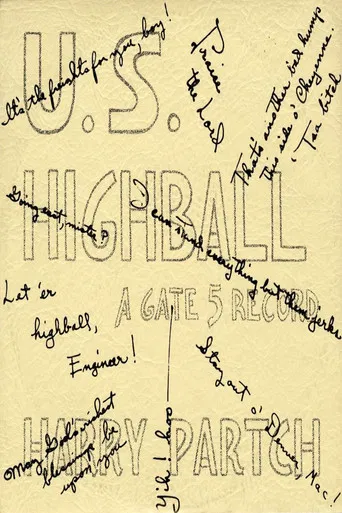 It's the freights for you, boy!
U.S.
Praise
the Lord
That's another bad hump
this side o' Cheyenne.
Too bitch
Going east, mister?
HIGHBALL
I can stand everything but them jerks
A GATE 5 RECORD
Let 'er
highball,
Engineer!
Stay out o' Denver, Mac!
HARRY PARTCH
May God's richest
blessings be
upon you
Yih! i kong